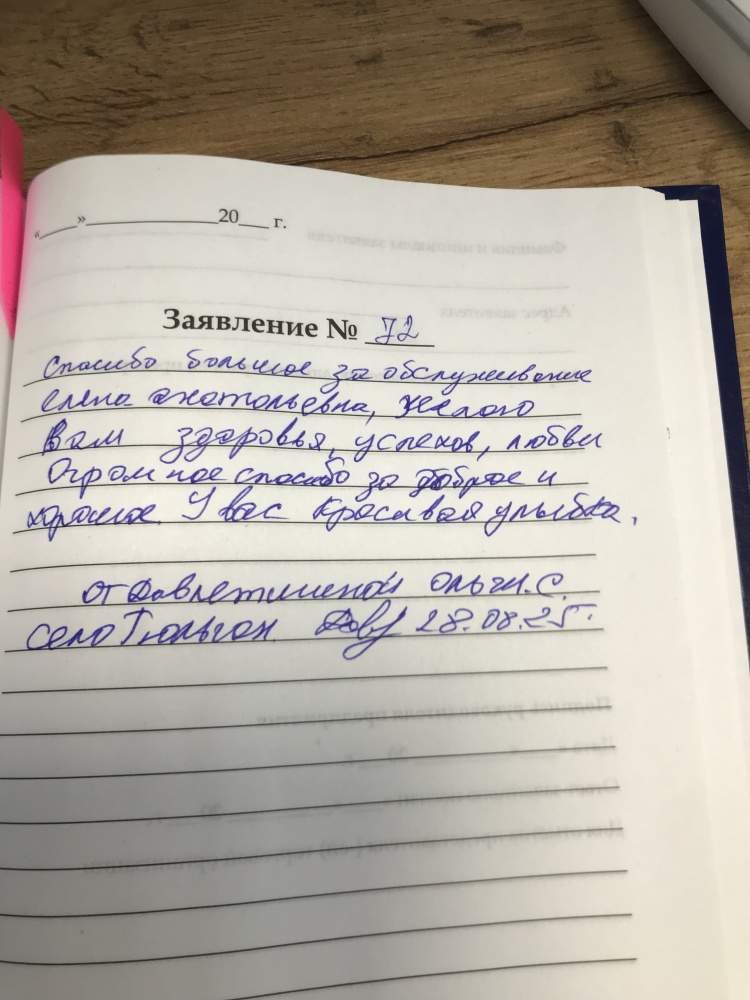 «____»______________20___ г.
Заявление № 72
Спасибо большое за обслуживание
елена анатольевна, желаю
вам здоровья, успехов, любви
Огромное спасибо за доброе и
хорошое. У вас красивая улыбка.
от Давлетшиной ольги. С.
село Тюльган 28.08.25г.